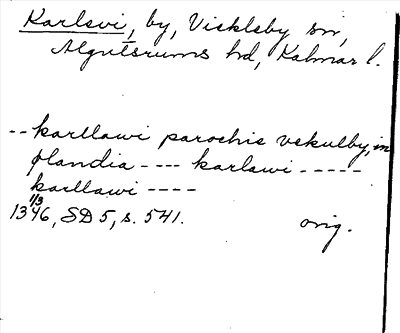 Karlevi, by, Vickleby sn,
Algutsrums hd, Kalmar l.
-- karllawi parochie vekulby, in
ølandia ---- karlawi -----
karllawi ----
1/3
1346, SD 5, s. 541. orig.